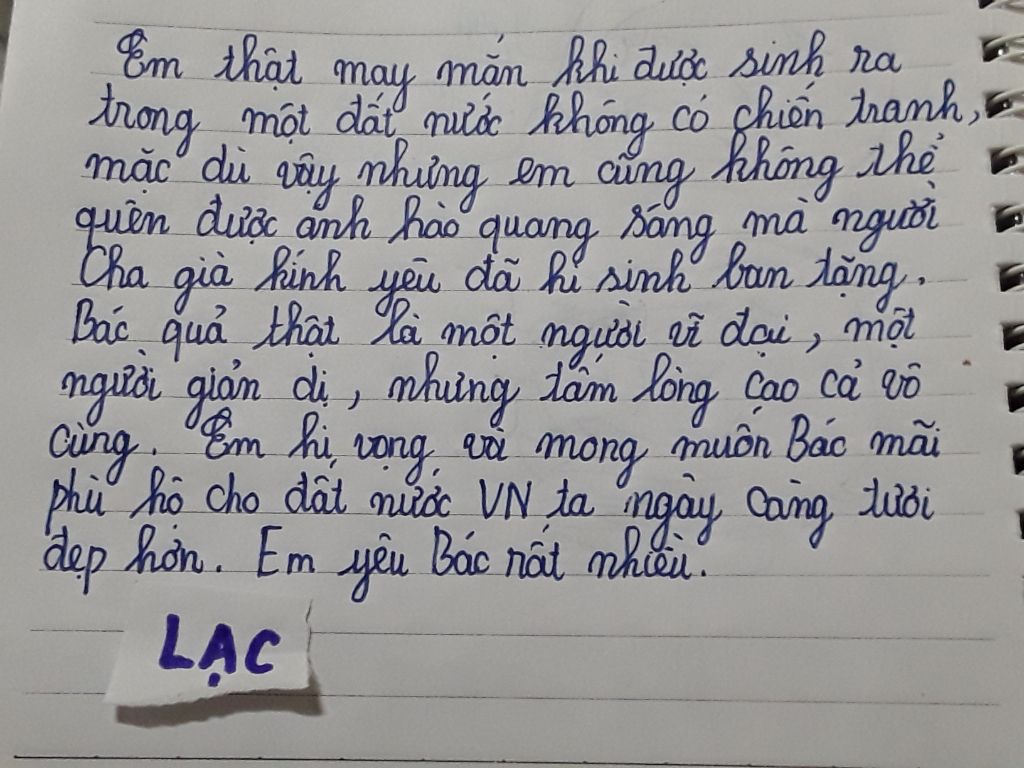 Em thật may mắn khi được sinh ra
trong một đất nước không có chiến tranh,
mặc dù vậy nhưng em cũng không thể
quên được ánh hào quang sáng mà người
Cha già kính yêu đã hi sinh ban tặng.
Bác quả thật là một người vĩ đại, một
người giản dị, nhưng tấm lòng cao cả vô
cùng. Em hi vọng và mong muốn Bác mãi
phù hộ cho đất nước VN ta ngày càng tươi
đẹp hơn. Em yêu Bác rất nhiều.
LẠC